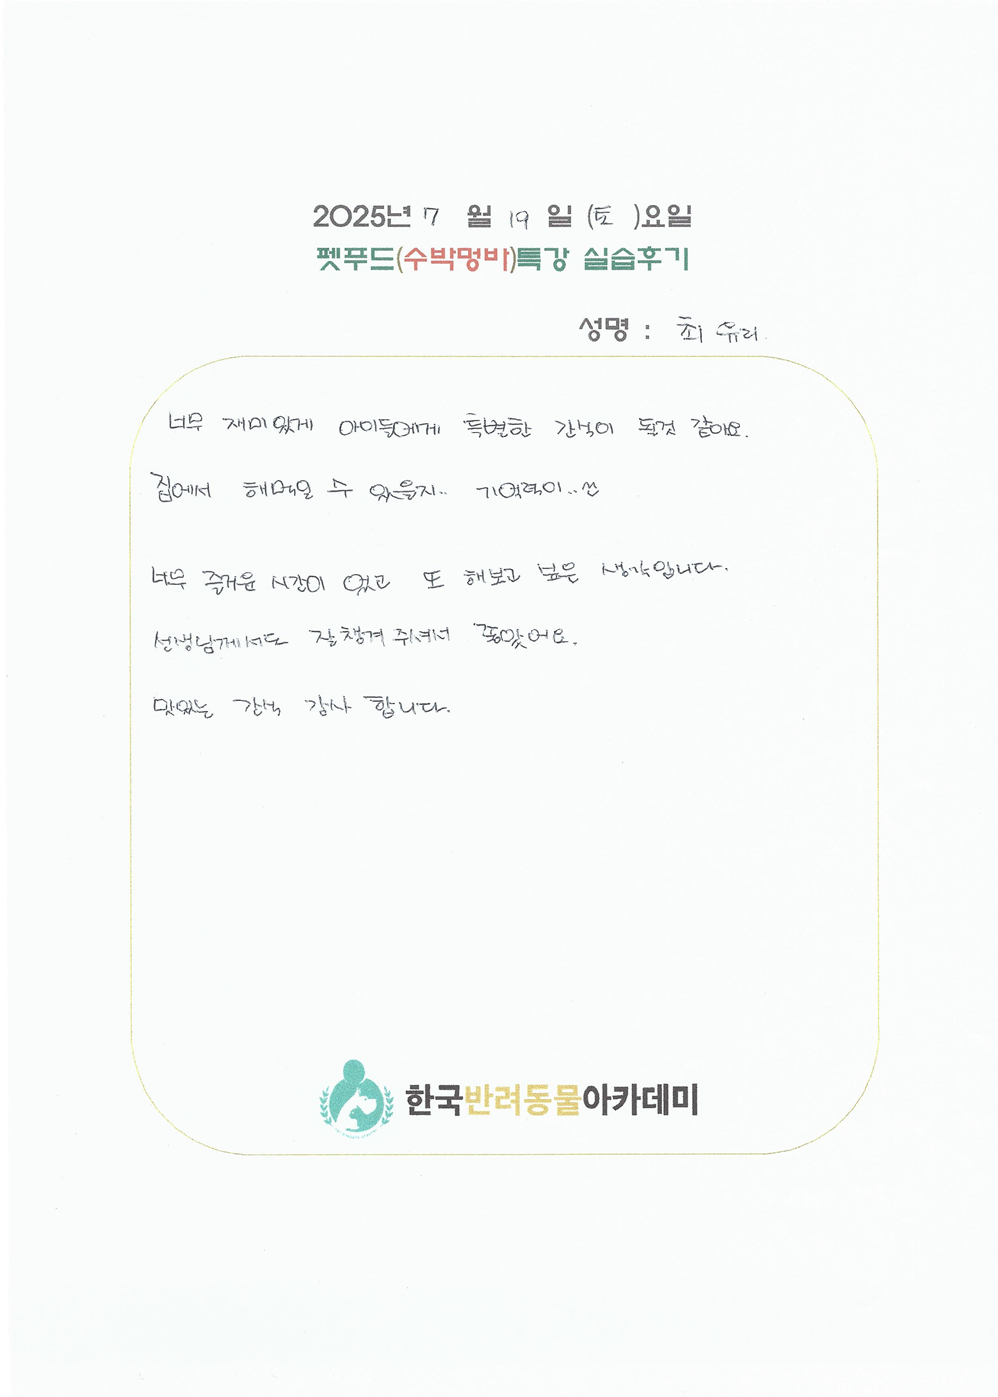 2025년 7 월 19 일 (토 )요일
펫푸드(수박멍바)특강 실습후기
성명 : 최유리.
너무 재미있게 아이들에게 특별한 간식이 될것 같아요.
집에서 해먹일 수 있을지.. 기억력이..
너무 즐거운 시간이 였고 또 해보고 싶은 생각입니다.
선생님께서도 잘챙겨주셔서 좋았어요.
맛있는 간식 감사 합니다.
한국반려동물아카데미